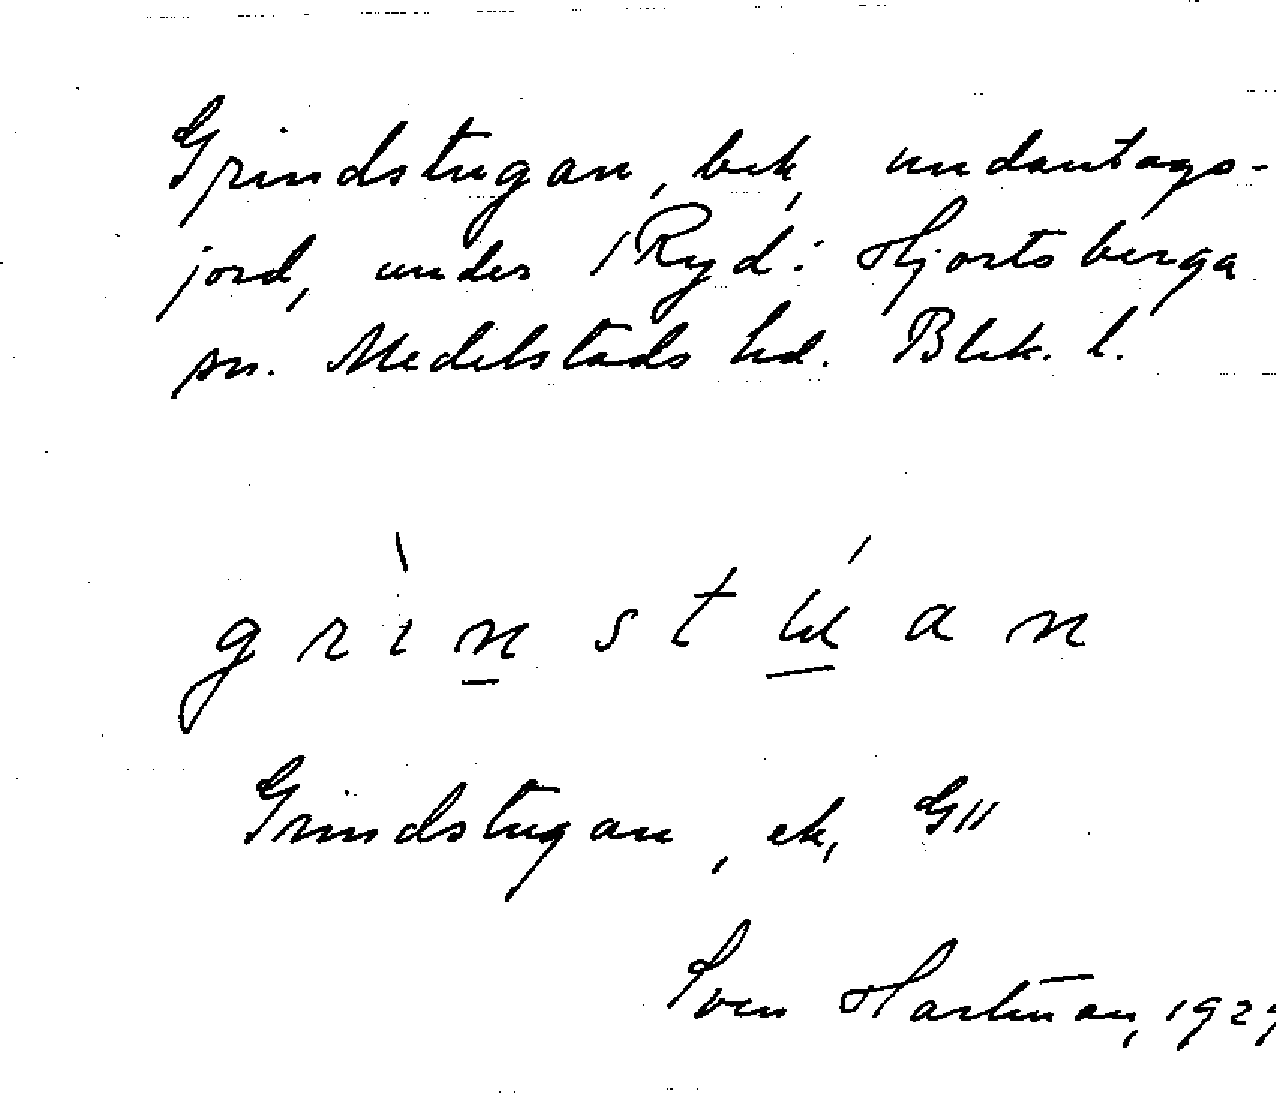 Grindstugan, bek, undantags-
jord, under 1 Ryd i Hjortsberga
sn. Medelstads hd. Blek. l.
grinstɯan
Grindstugan, ek, G11
Sven Hartman, 1929